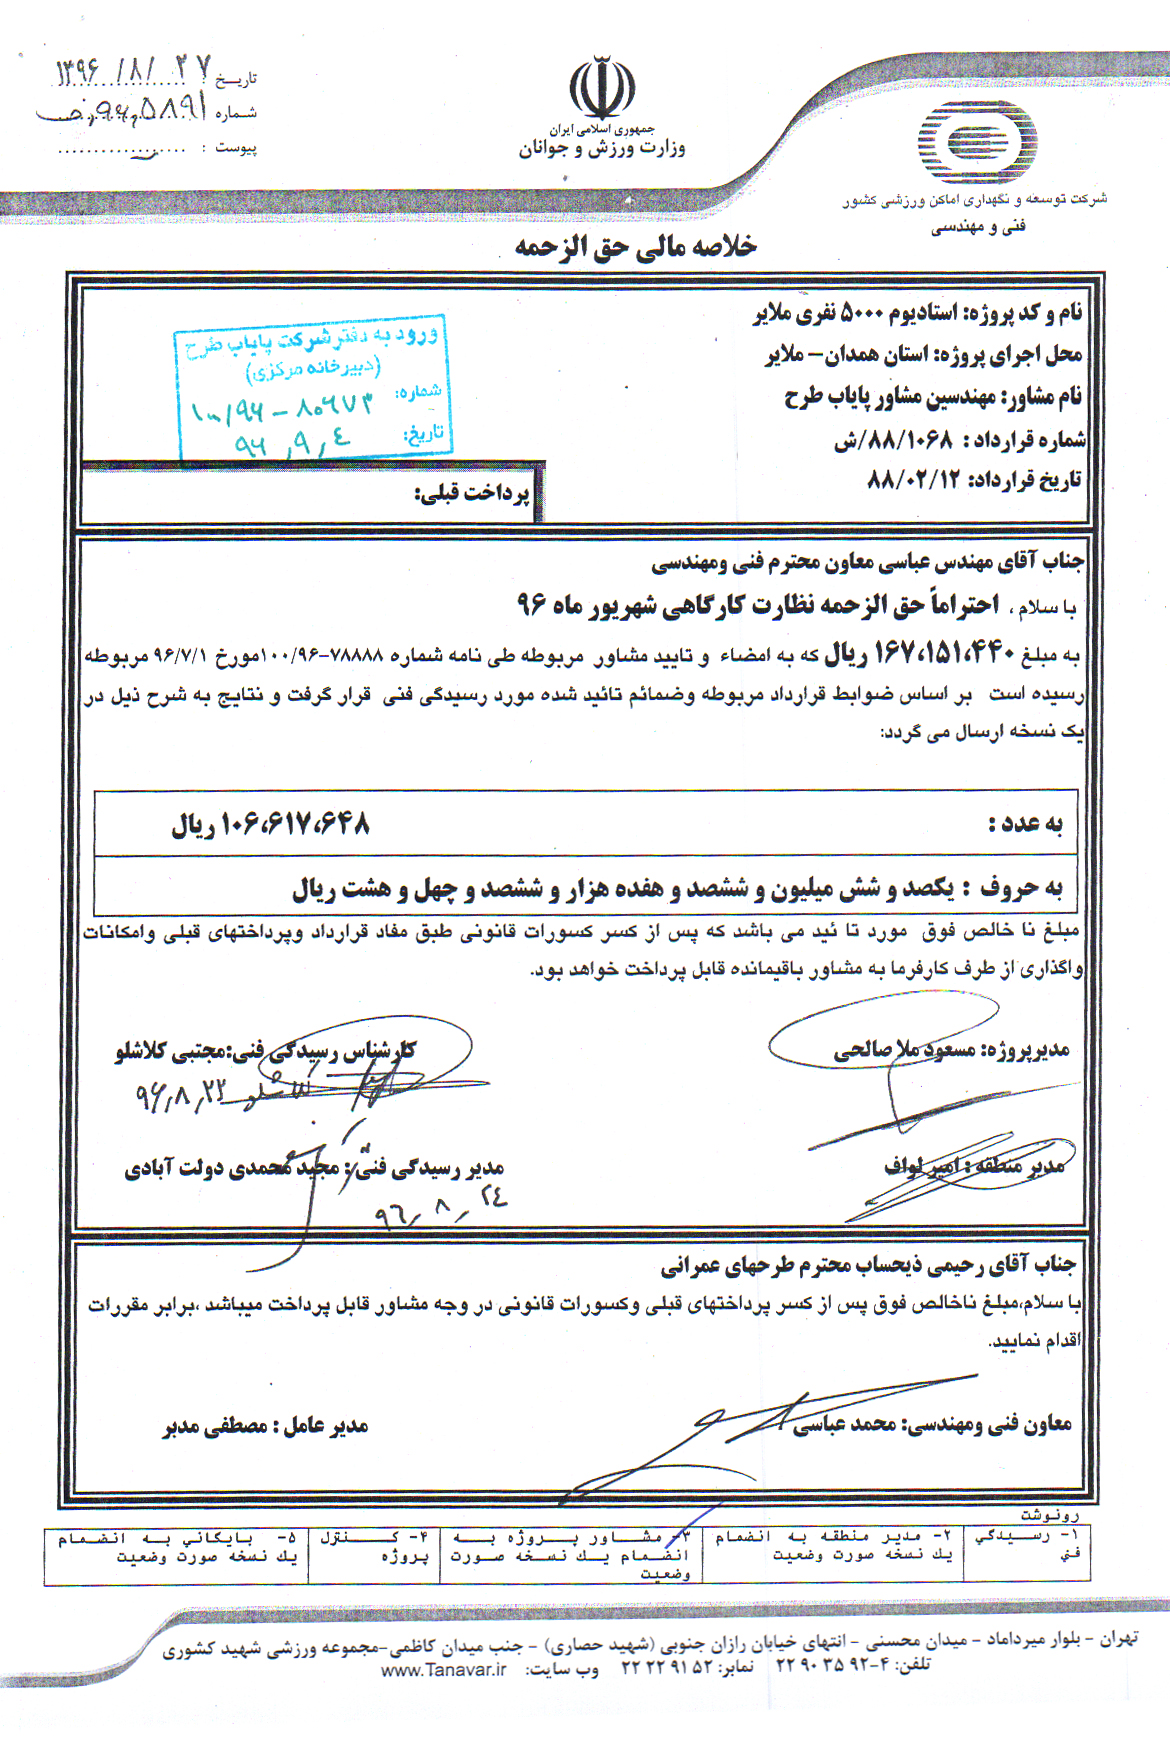 تاریخ ۱۳۹۶/۸/۲۷
شماره ۵۸۹۱
پیوست :
جمهوری اسلامی ایران
وزارت ورزش و جوانان
شرکت توسعه و نگهداری اماکن ورزشی کشور
فنی و مهندسی
خلاصه مالی حق الزحمه
نام و کد پروژه: استادیوم ۵۰۰۰ نفری ملایر
محل اجرای پروژه: استان همدان– ملایر
نام مشاور: مهندسین مشاور پایاب طرح
شماره قرارداد : ۸۸/۱۰۶۸/ش
تاریخ قرارداد: ۸۸/۰۲/۱۲
ورود به دفتر شرکت پایاب طرح
(دبیرخانه مرکزی)
شماره: ۱۰۰/۹۶-۸۰۶۷۳
تاریخ: ۹۶,۹,۴
پرداخت قبلی:
جناب آقای مهندس عباسی معاون محترم فنی ومهندسی
با سلام ، احتراماً حق الزحمه نظارت کارگاهی شهریور ماه ۹۶
به مبلغ ۱۶۷،۱۵۱،۴۴۰ ریال که به امضاء و تایید مشاور مربوطه طی نامه شماره ۷۸۸۸۸-۱۰۰/۹۶مورخ ۹۶/۷/۱ مربوطه
رسیده است بر اساس ضوابط قرارداد مربوطه وضمائم تائید شده مورد رسیدگی فنی قرار گرفت و نتایج به شرح ذیل در
یک نسخه ارسال می گردد:
به عدد : ۱۰۶،۶۱۷،۶۴۸ ریال
به حروف : یکصد و شش میلیون و ششصد و هفده هزار و ششصد و چهل و هشت ریال
مبلغ نا خالص فوق مورد تا ئید می باشد که پس از کسر کسورات قانونی طبق مفاد قرارداد وپرداختهای قبلی وامکانات
واگذاری از طرف کارفرما به مشاور باقیمانده قابل پرداخت خواهد بود.
مدیرپروژه: مسعود ملا صالحی
کارشناس رسیدگی فنی:مجتبی کلاشلو
کلاشلو ۹۶,۸,۲۳
مدیر منطقه : امیر لواف
مدیر رسیدگی فنی: مجید محمدی دولت آبادی
۹۶,۸,۲۴
جناب آقای رحیمی ذیحساب محترم طرحهای عمرانی
با سلام،مبلغ ناخالص فوق پس از کسر پرداختهای قبلی وکسورات قانونی در وجه مشاور قابل پرداخت میباشد ،برابر مقررات
اقدام نمایید.
معاون فنی ومهندسی: محمد عباسی
مدیر عامل : مصطفی مدبر
رونوشت
۱- رسیدگی
فنی
۲- مدیر منطقه به انضمام
یك نسخه صورت وضعیت
۳- مشاور پروژه به
انضمام یك نسخه صورت
وضعیت
۴- کنترل
پروژه
۵- بایگانی به انضمام
یك نسخه صورت وضعیت
تهران – بلوار میرداماد – میدان محسنی – انتهای خیابان رازان جنوبی (شهید حصاری) – جنب میدان کاظمی–مجموعه ورزشی شهید کشوری
تلفن: ۴-۹۲ ۳۵ ۹۰ ۲۲ نمابر: ۵۲ ۹۱ ۲۲ ۲۲ وب سایت: www.Tanavar.ir